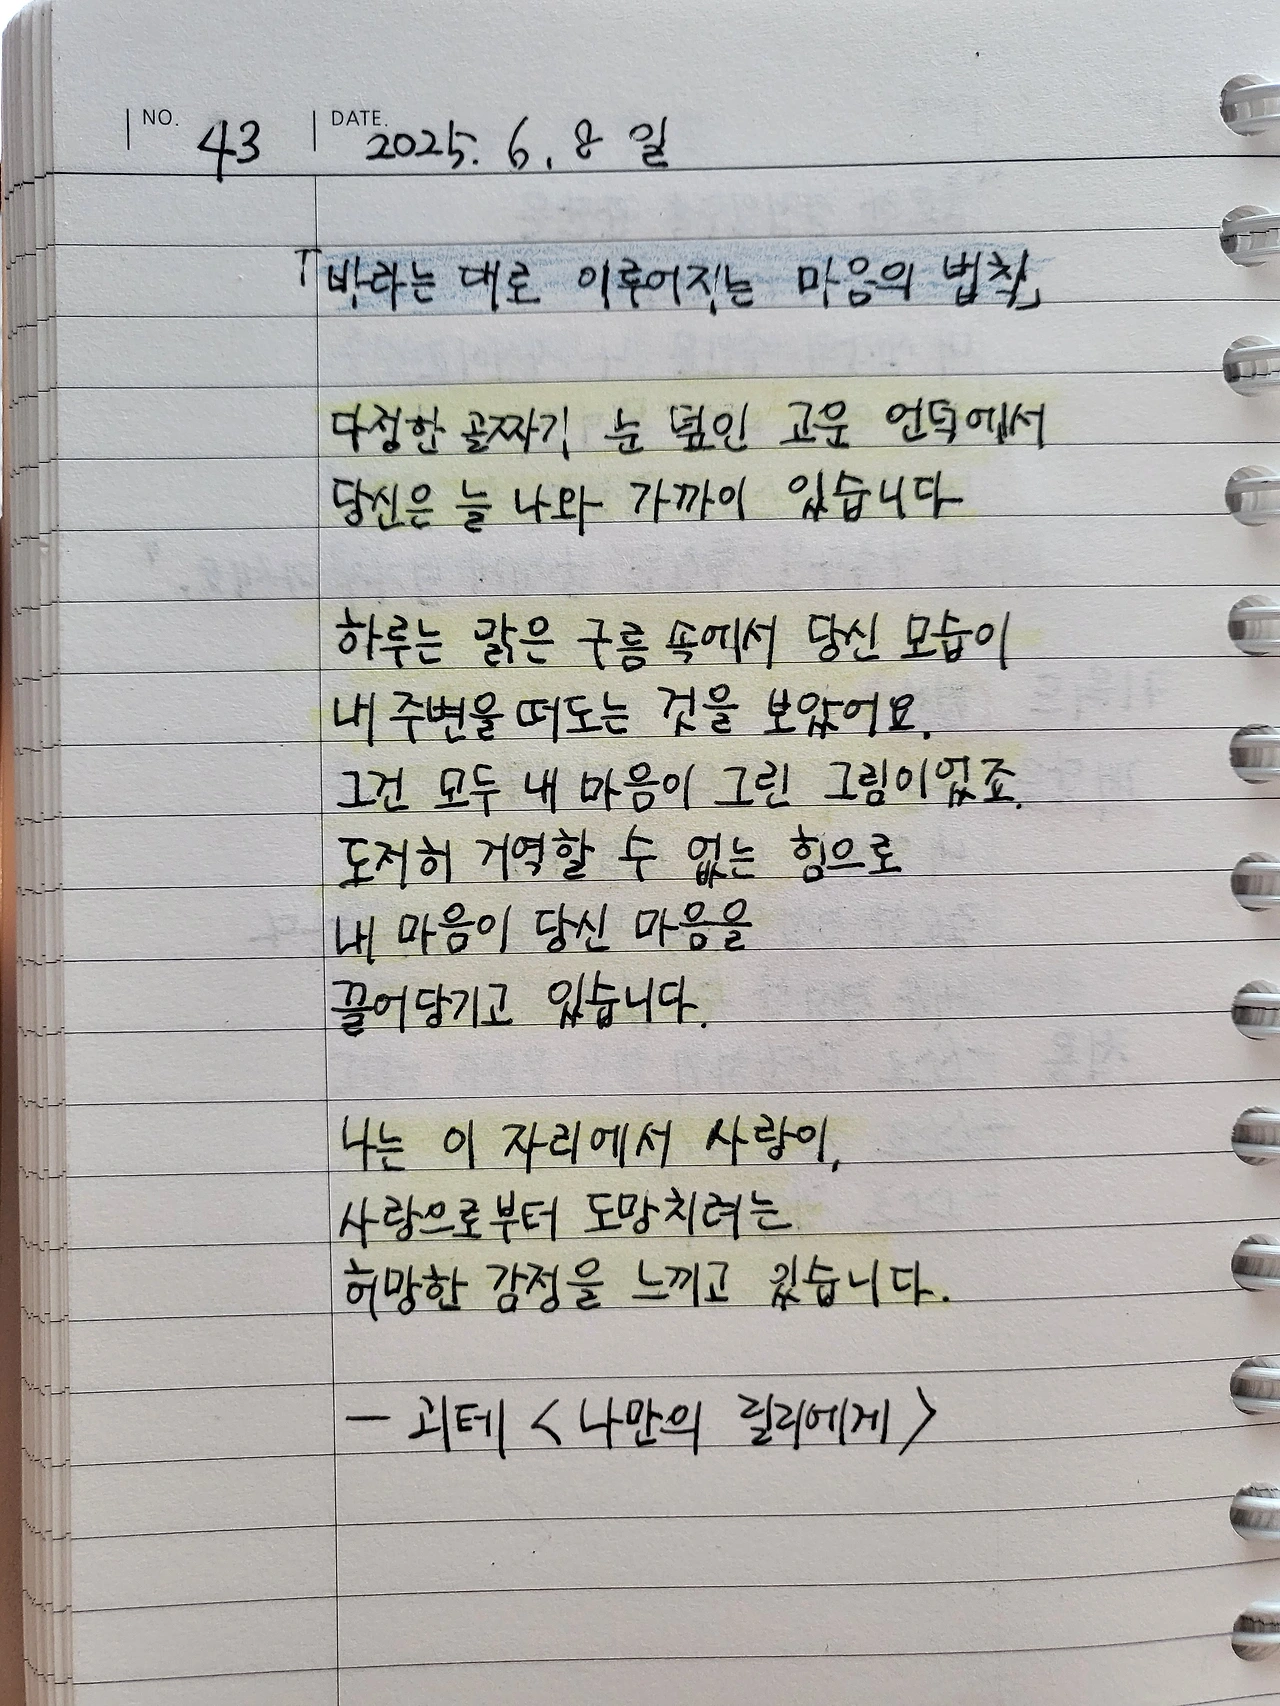 NO. 43 DATE. 2025. 6. 8 일
「바라는 대로 이루어지는 마음의 법칙」
다정한 골짜기, 눈 덮인 고운 언덕에서
당신은 늘 나와 가까이 있습니다
하루는 맑은 구름 속에서 당신 모습이
내 주변을 떠도는 것을 보았어요.
그건 모두 내 마음이 그린 그림이었죠.
도저히 거역할 수 없는 힘으로
내 마음이 당신 마음을
끌어당기고 있습니다.
나는 이 자리에서 사랑이,
사랑으로부터 도망치려는
허망한 감정을 느끼고 있습니다.
— 괴테 〈나만의 릴리에게〉